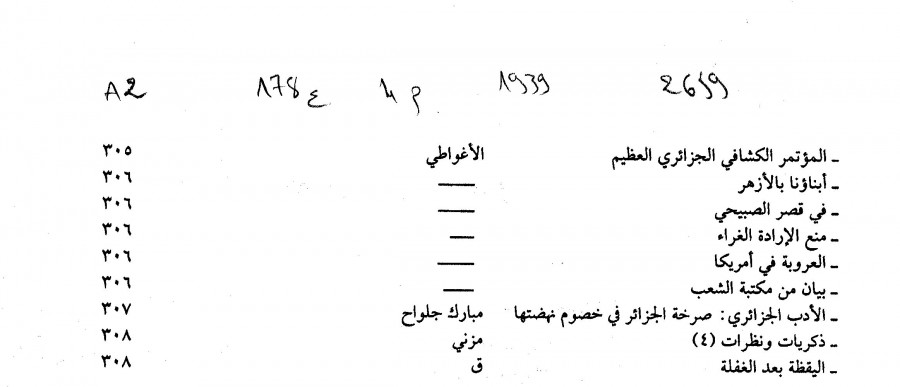 2659 1939 م 4 ع 178 A2
- المؤتمر الكشافي الجزائري العظيم الأغواطي ٣٠٥
- أبناؤنا بالأزهر —— ٣٠٦
- في قصر الصبيحي —— ٣٠٦
- منع الإرادة الغراء —— ٣٠٦
- العروبة في أمريكا —— ٣٠٦
- بيان من مكتبة الشعب —— ٣٠٦
- الأدب الجزائري: صرخة الجزائر في خصوم نهضتها مبارك جلواح ٣٠٧
- ذكريات ونظرات (٤) مزني ٣٠٨
- اليقظة بعد الغفلة ق ٣٠٨